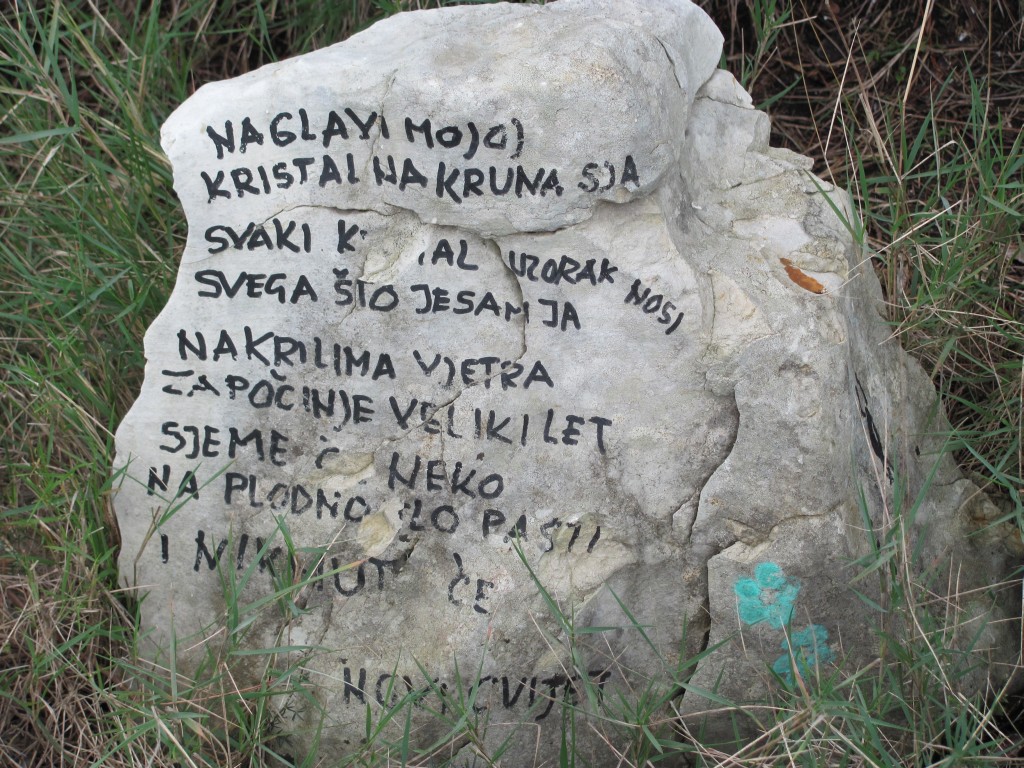 NA GLAVI MOJOJ
KRISTALNA KRUNA SJA
SVAKI UZORAK NOSI
SVEGA ŠTO JESAM JA
NA KRILIMA VJETRA
ZAPOČINJE VELIKI LET
SJEME NEKO
NA PLODNO PASTI
I NIKNUT ĆE
NOVI CVIJET